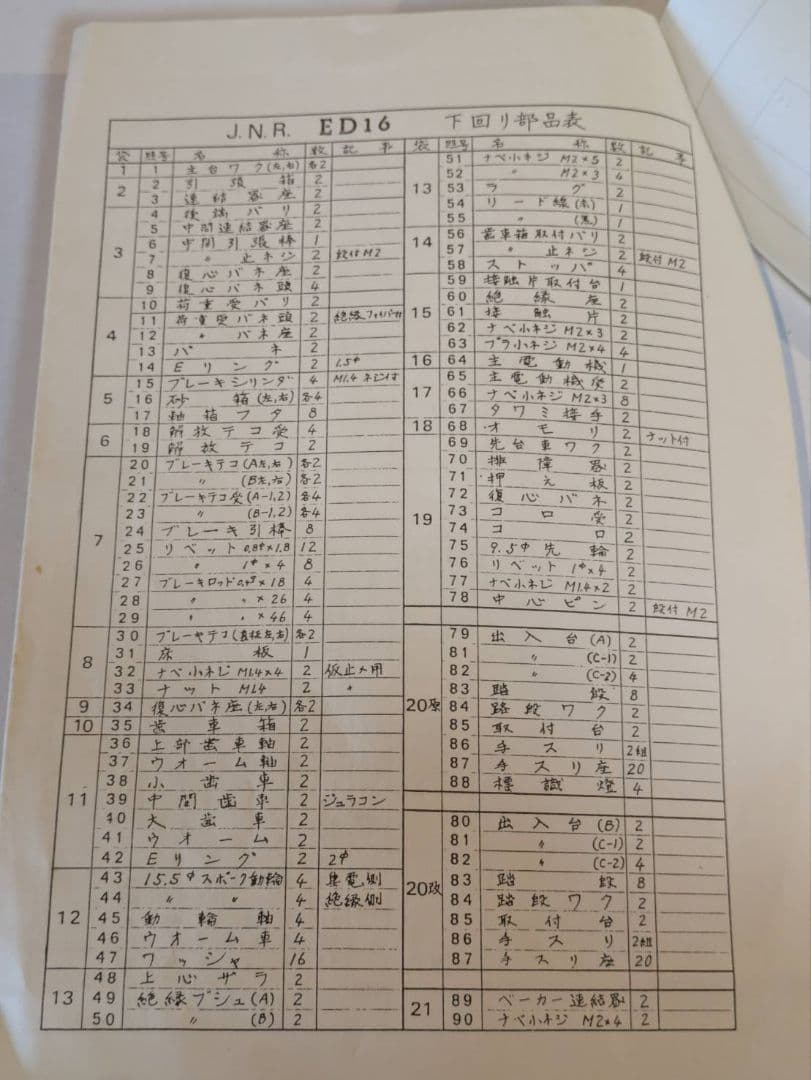 J.N.R. ED16 下回り部品表
袋 照号 名称 数 記事
1 1 主台ワク(左,右) 各2
2 2 引張箱 2
3 連結器座 2
3 4 後端バリ 2
5 中間連結器座 2
6 中間引張棒 1
7 〃 止ネジ 2 段付M2
8 復心バネ座 2
9 復心バネ頭 4
4 10 荷重受バリ 2
11 荷重受バネ頭 2 絶縁ファイバー付
12 〃 バネ座 2
13 バネ 2
14 Eリング 2 1.5φ
5 15 ブレーキシリンダ 4 M1.4ネジ付
16 砂箱(左,右) 各4
17 軸箱フタ 8
6 18 解放テコ受 4
19 解放テコ 2
7 20 ブレーキテコ(A左,右) 各2
21 〃 (B左,右) 各2
22 ブレーキテコ受(A-1,2) 各4
23 〃 (B-1,2) 各4
24 ブレーキ引棒 8
25 リベット 0.8φ×1.8 12
26 〃 1φ×4 8
27 ブレーキロッド ×18 4
28 〃 〃 ×26 4
29 〃 〃 ×46 4
8 30 ブレーキテコ(直板左,右) 各2
31 床板 1
32 ナベ小ネジ M1.4×4 2 仮止メ用
33 ナット M1.4 2 〃
9 34 復心バネ座(左,右) 各2
10 35 歯車箱 2
11 36 上部歯車軸 2
37 ウオーム軸 2
38 小歯車 2
39 中間歯車 2 ジュラコン
40 大歯車 2
41 ウオーム 2
42 Eリング 2 2φ
12 43 15.5φスポーク動輪 4 集電側
44 〃 〃 4 絶縁側
45 動輪軸 4
46 ウオーム車 4
47 ワッシャ 16
13 48 上心ザラ 2
49 絶縁ブシュ(A) 2
50 〃 (B) 2
袋 照号 名称 数 記事
13 51 ナベ小ネジ M2×5 2
52 〃 M2×3 4
53 ラグ 2
54 リード線(赤) 1
55 〃 (黒) 1
14 56 歯車箱取付バリ 2
57 〃 止ネジ 2 段付M2
58 ストッパ 4
15 59 接触片取付台 1
60 絶縁座 2
61 接触片 2
62 ナベ小ネジ M2×3 2
63 プラ小ネジ M2×4 4
16 64 主電動機 1
17 65 主電動機座 2
66 ナベ小ネジ M2×3 8
67 タワミ接手 2
18 68 オモリ 2 ナット付
19 69 先台車ワク 2
70 排障器 2
71 押え板 2
72 復心バネ 2
73 コロ受 2
74 コロ 2
75 9.5φ先輪 2
76 リベット 1φ×4 2
77 ナベ小ネジ M1.4×2 2
78 中心ピン 2 段付M2
20原 79 出入台(A) 2
81 〃 (C-1) 2
82 〃 (C-2) 4
83 踏段 8
84 踏段ワク 2
85 取付台 2
86 手スリ 2組
87 手スリ座 20
88 標識燈 4
20改 80 出入台(B) 2
81 〃 (C-1) 2
82 〃 (C-2) 4
83 踏段 8
84 踏段ワク 2
85 取付台 2
86 手スリ 2組
87 手スリ座 20
21 89 ベーカー連結器 2
90 ナベ小ネジ M2×4 2